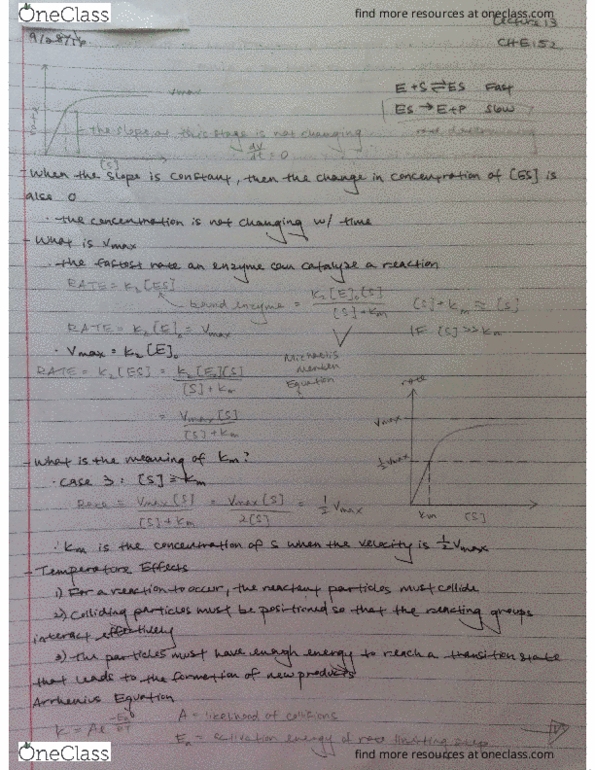 OneClass
find more resources at oneclass.com
Lecture 13
CHE152
E + S ⇌ ES Fast
ES → E + P Slow
Vmax
the slope at this stage is not changing
dv/dt = 0
[S]
- When the slope is constant, then the change in concentration of [ES] is
also 0
· the concentration is not changing w/ time
- What is Vmax
· the fastest rate an enzyme can catalyze a reaction
RATE = k₂[ES]
bound enzyme = k₂[E]₀[S] / [S]+km
[S]+km ≈ [S]
RATE = k₂[E]₀ = Vmax
IF [S] >> km
· Vmax = k₂[E]₀
Michaelis
Menten
Equation
RATE = k₂[ES] = k₂[E₀][S] / [S]+km
= Vmax[S] / [S]+km
rate
Vmax
½Vmax
km
[S]
- What is the meaning of km?
· case 3: [S] = km
Rate = Vmax[S] / [S]+km = Vmax[S] / 2[S] = ½ Vmax
· km is the concentration of S when the velocity is ½Vmax
- Temperature Effects
1) For a reaction to occur, the reactant particles must collide
2) Colliding particles must be positioned so that the reacting groups
interact effectively
3) The particles must have enough energy to reach a transition state
that leads to the formation of new products
Arrhenius Equation
A = likelihood of collisions
Ea = activation energy of
OneClass
find more resources at oneclass.com